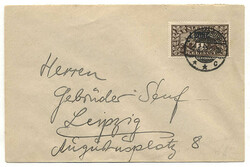 Herren
Gebrüder Senf
Leipzig
Augustusplatz 8